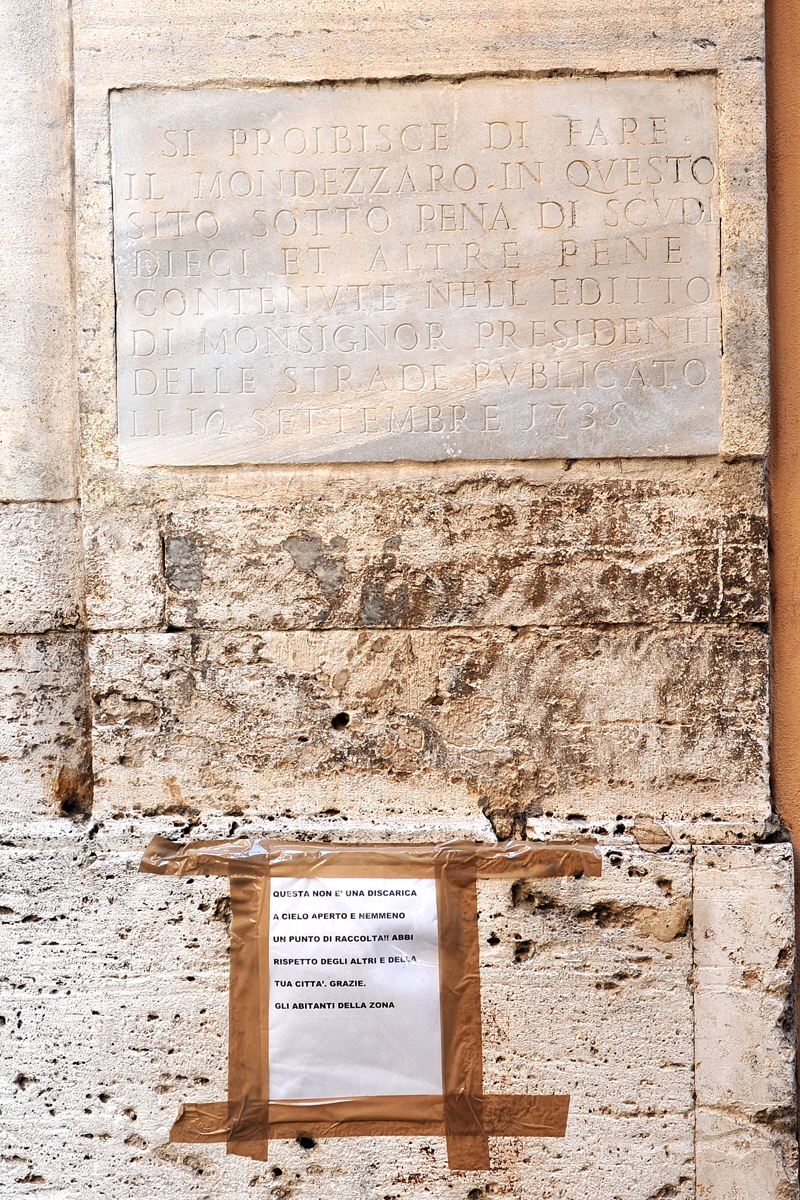 SI PROIBISCE DI FARE
IL MONDEZZARO IN QVESTO
SITO SOTTO PENA DI SCVDI
DIECI ET ALTRE PENE
CONTENVTE NELL EDITTO
DI MONSIGNOR PRESIDENTE
DELLE STRADE PVBLICATO
LI 10 SETTEMBRE 1735
QUESTA NON E' UNA DISCARICA
A CIELO APERTO E NEMMENO
UN PUNTO DI RACCOLTA!! ABBI
RISPETTO DEGLI ALTRI E DELLA
TUA CITTA'. GRAZIE.
GLI ABITANTI DELLA ZONA